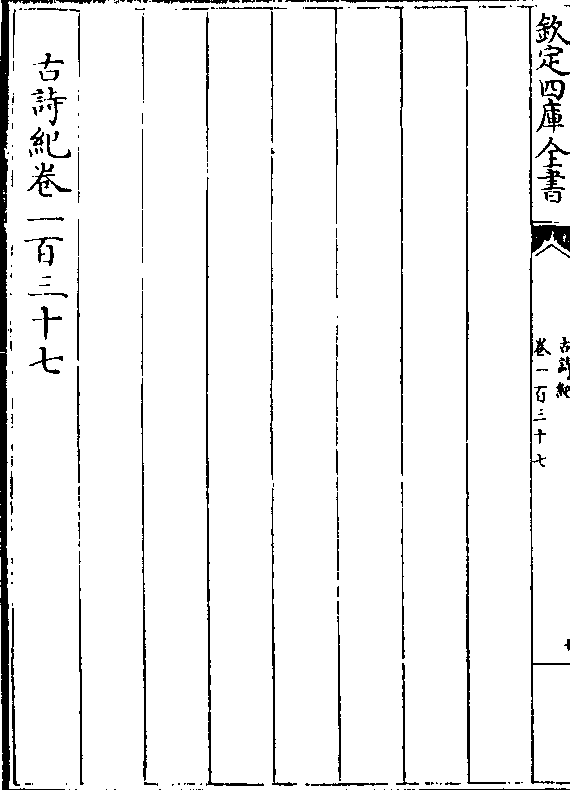 欽定四庫全書
古詩紀
卷一百三十七
古詩紀卷一百三十七